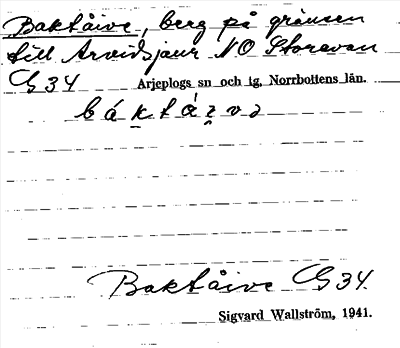 Baktåive, berg på gränsen
till Arvidsjaur NO Storavan
G 34 Arjeplogs sn och tg, Norrbottens län.
Baktåive G 34.
Sigvard Wallström, 1941.